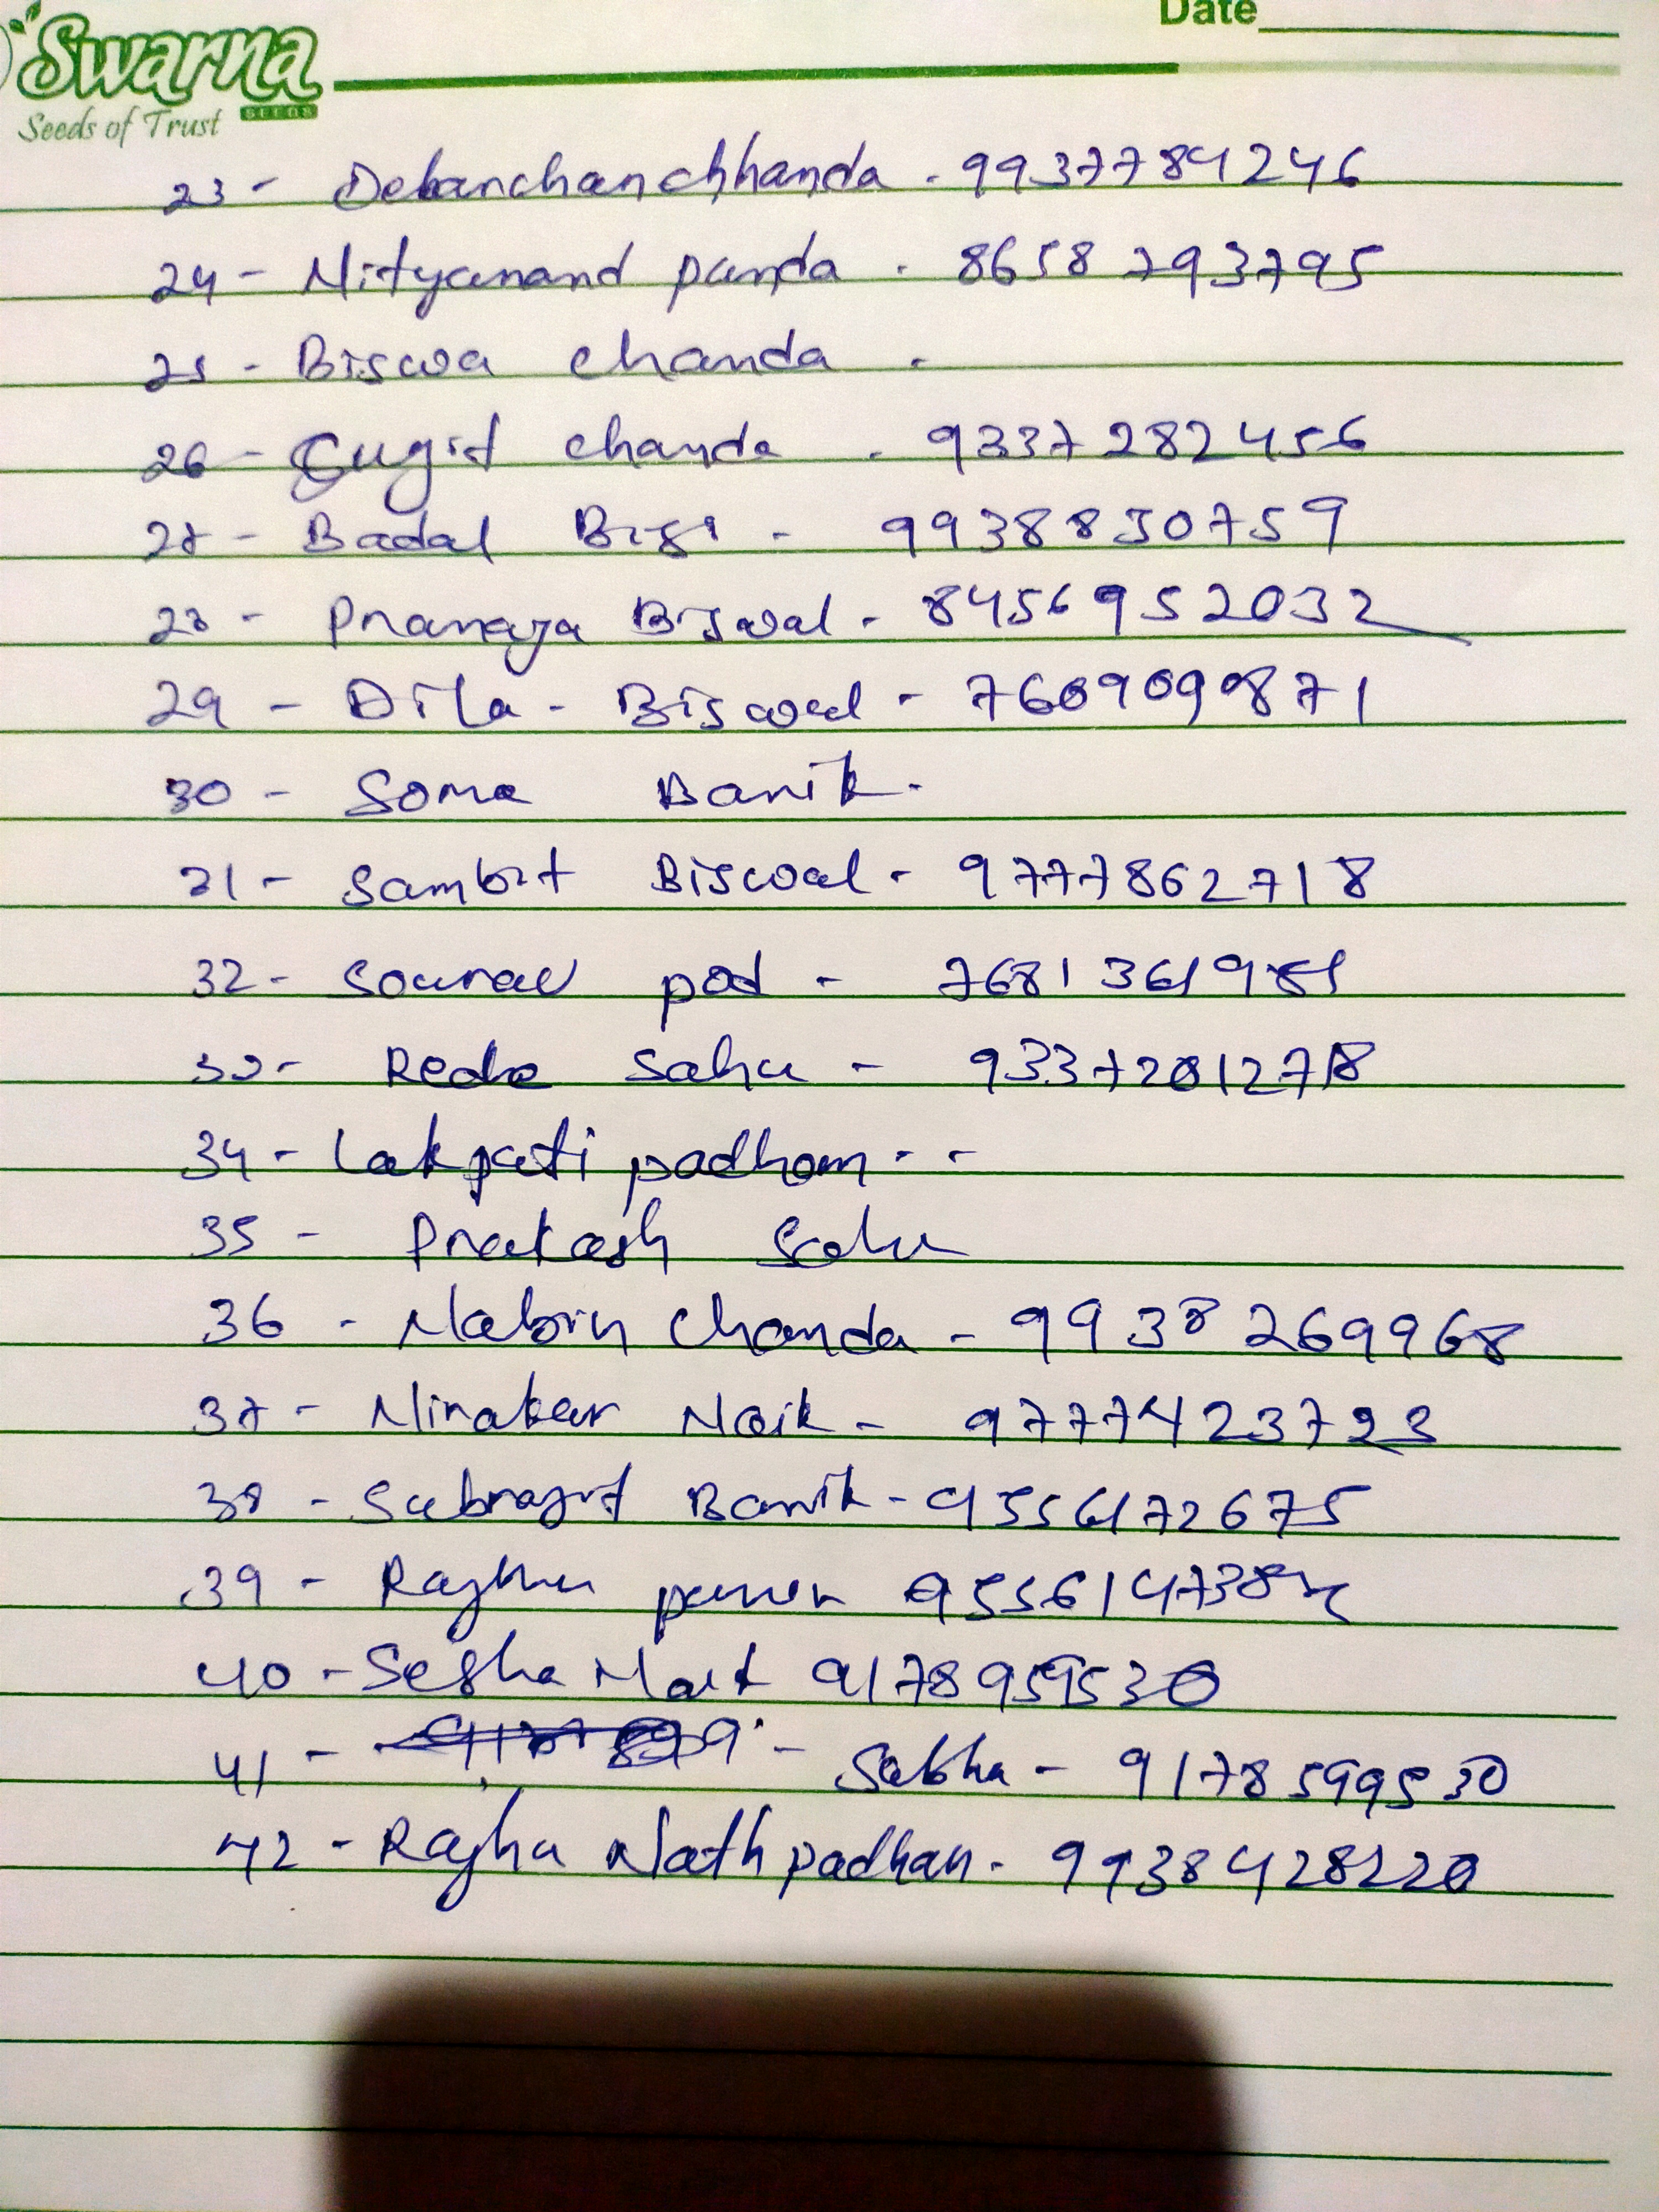 Date
Swarna
SEEDS
Seeds of Trust
23 - Debanchanchhanda . 9937784246
24 - Nityanand panda . 8658 793795
25 - Biswa chanda .
26 - Sugit chanda . 9337282456
27 - Badal Bisi - 9938830759
28 - Pranaya Biswal - 8456952032
29 - Dila - Biswal - 7609090871
30 - Soma Banik .
31 - Sambit Biswal - 9777862718
32 - Sourav pod - 7681361981
33 - Reda Sahu - 9337201278
34 - Lakpati padhan . -
35 - Prakash Sahu
36 - Nabin Chanda - 9938269968
37 - Nirakar Naik - 9777423723
38 - Subrajit Banik - 9556172675
39 - Raghu
40 - Sesha Naik 9178959530
41 - - Sabha - 9178599530
42 - Raghu Nath padhan - 9938428220